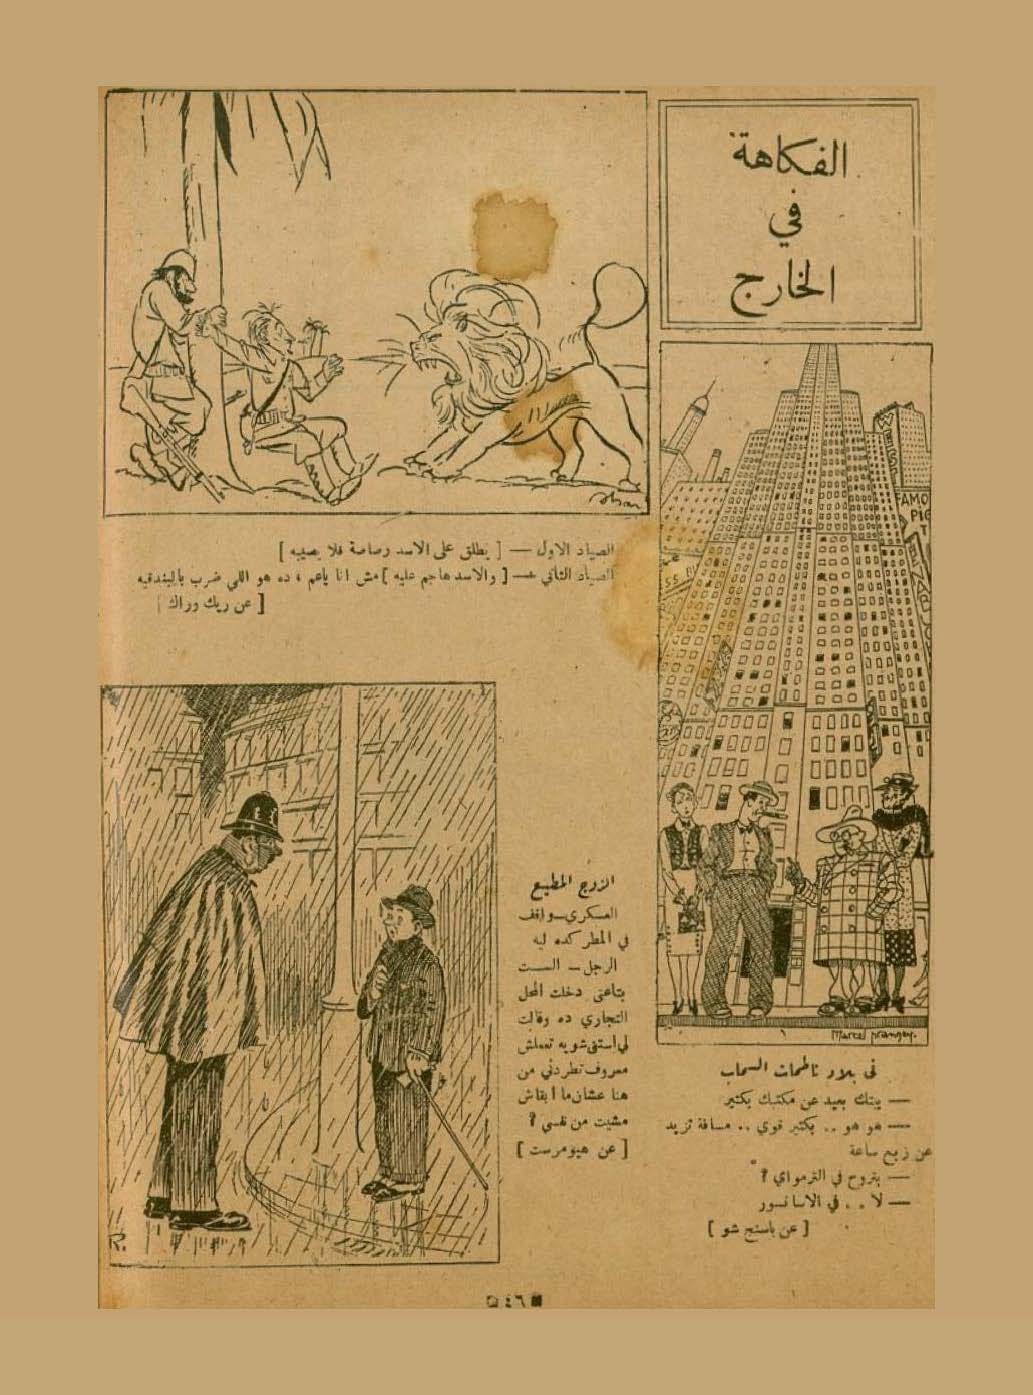 الفكاهة
في
الخارج
الصياد الاول — [ يطلق على الاسد رصاصة فلا يصيبه ]
الصياد الثاني — [ والاسد هاجم عليه ] مش انا ياعم ، ده هو اللي ضرب بالبندقيه
[ عن ريك وراك ]
FAMO
PIG
T
الزوج المطيع
العسكري — واقف
في المطر كده ليه
الرجل — الست
بتاعتى دخلت المحل
التجاري ده وقالت
لي استنى شويه تعملش
معروف تطردني من
هنا عشان ما ابقاش
مشيت من نفسي ؟
[ عن هيومرست ]
Marcel Prangey.
في بلاد ناطحات السحاب
— بيتك بعيد عن مكتبك بكتير
— هو هو .. بكتير قوي .. مسافة تزيد
عن ربع ساعة
— بتروح في الترمواي ؟
— لا .. في الاسانسور
[ عن باسنج شو ]
R.
٤٦